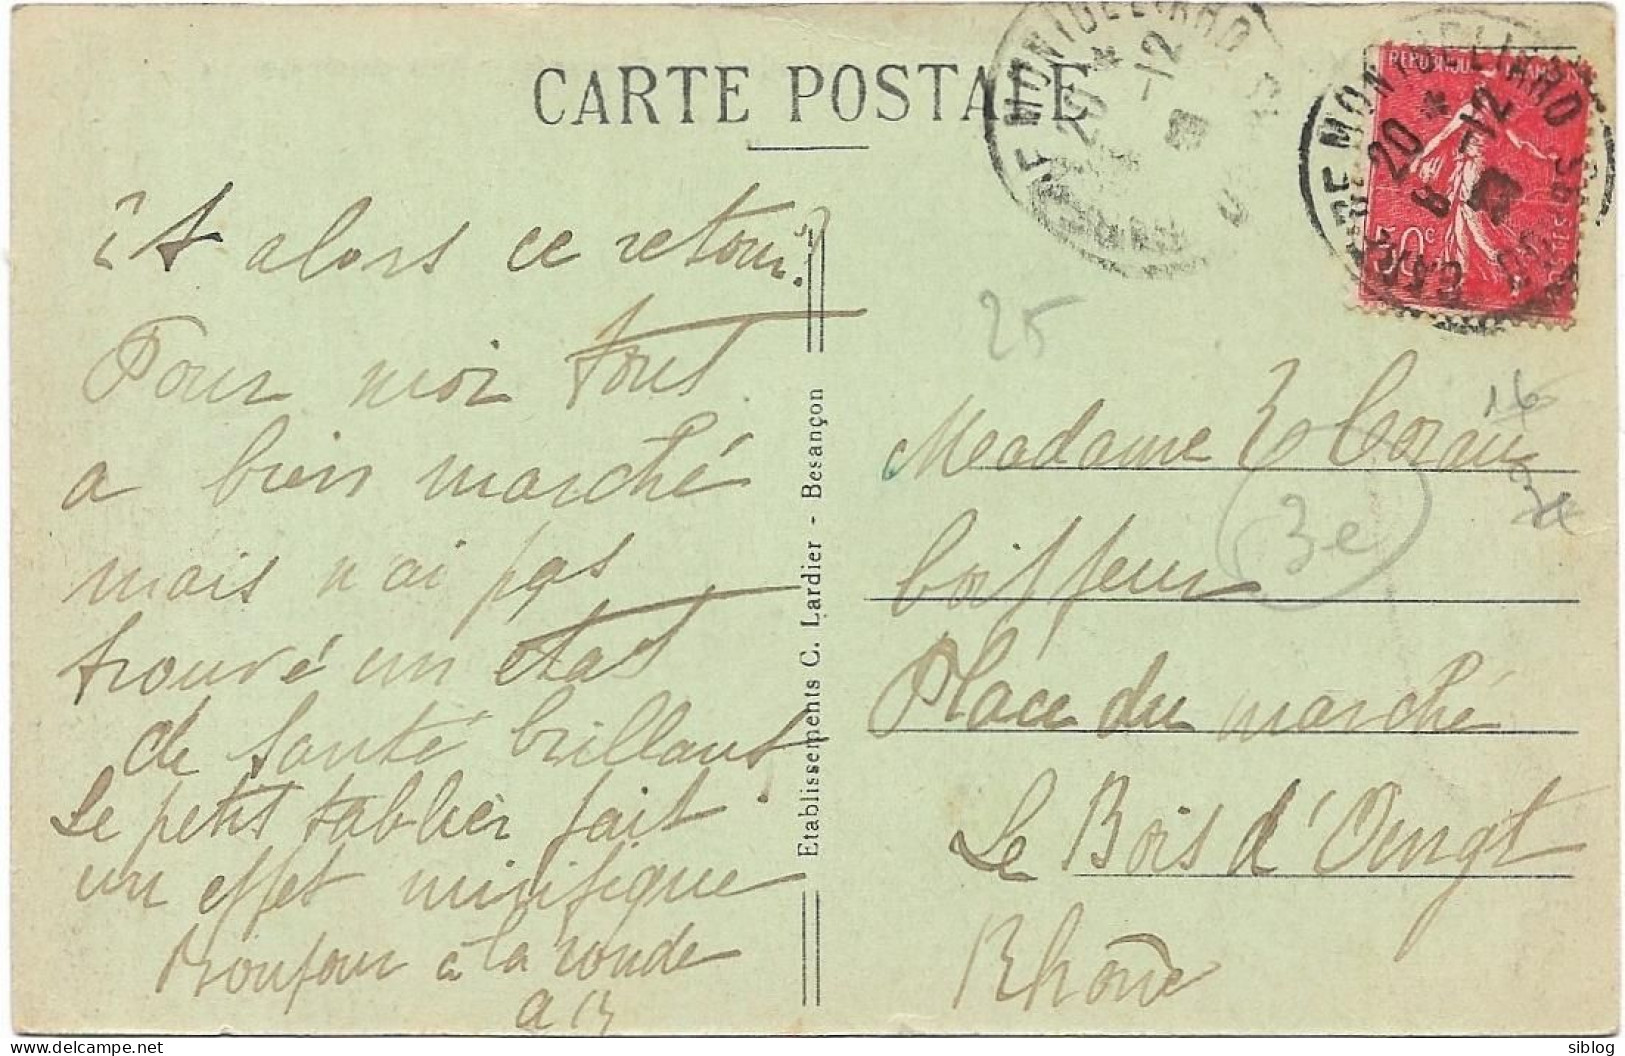 CARTE POSTALE
Et alors ce retour?
Pour moi tout
a bien marché
mais n'ai pas
trouvé un état
de santé brillant
Le petit tablier fait
un effet mirifique
Bonjour à la ronde
Etablissements C. Lardier - Besançon
GARE MONTBELIARD
20 *
-12
GARE MONTBELIARD
20 *
8 -12
DOUBS
50c
25
Madame
Coiffeur
Place du marché
Le Bois d'Oingt
Rhône
3e
siblog